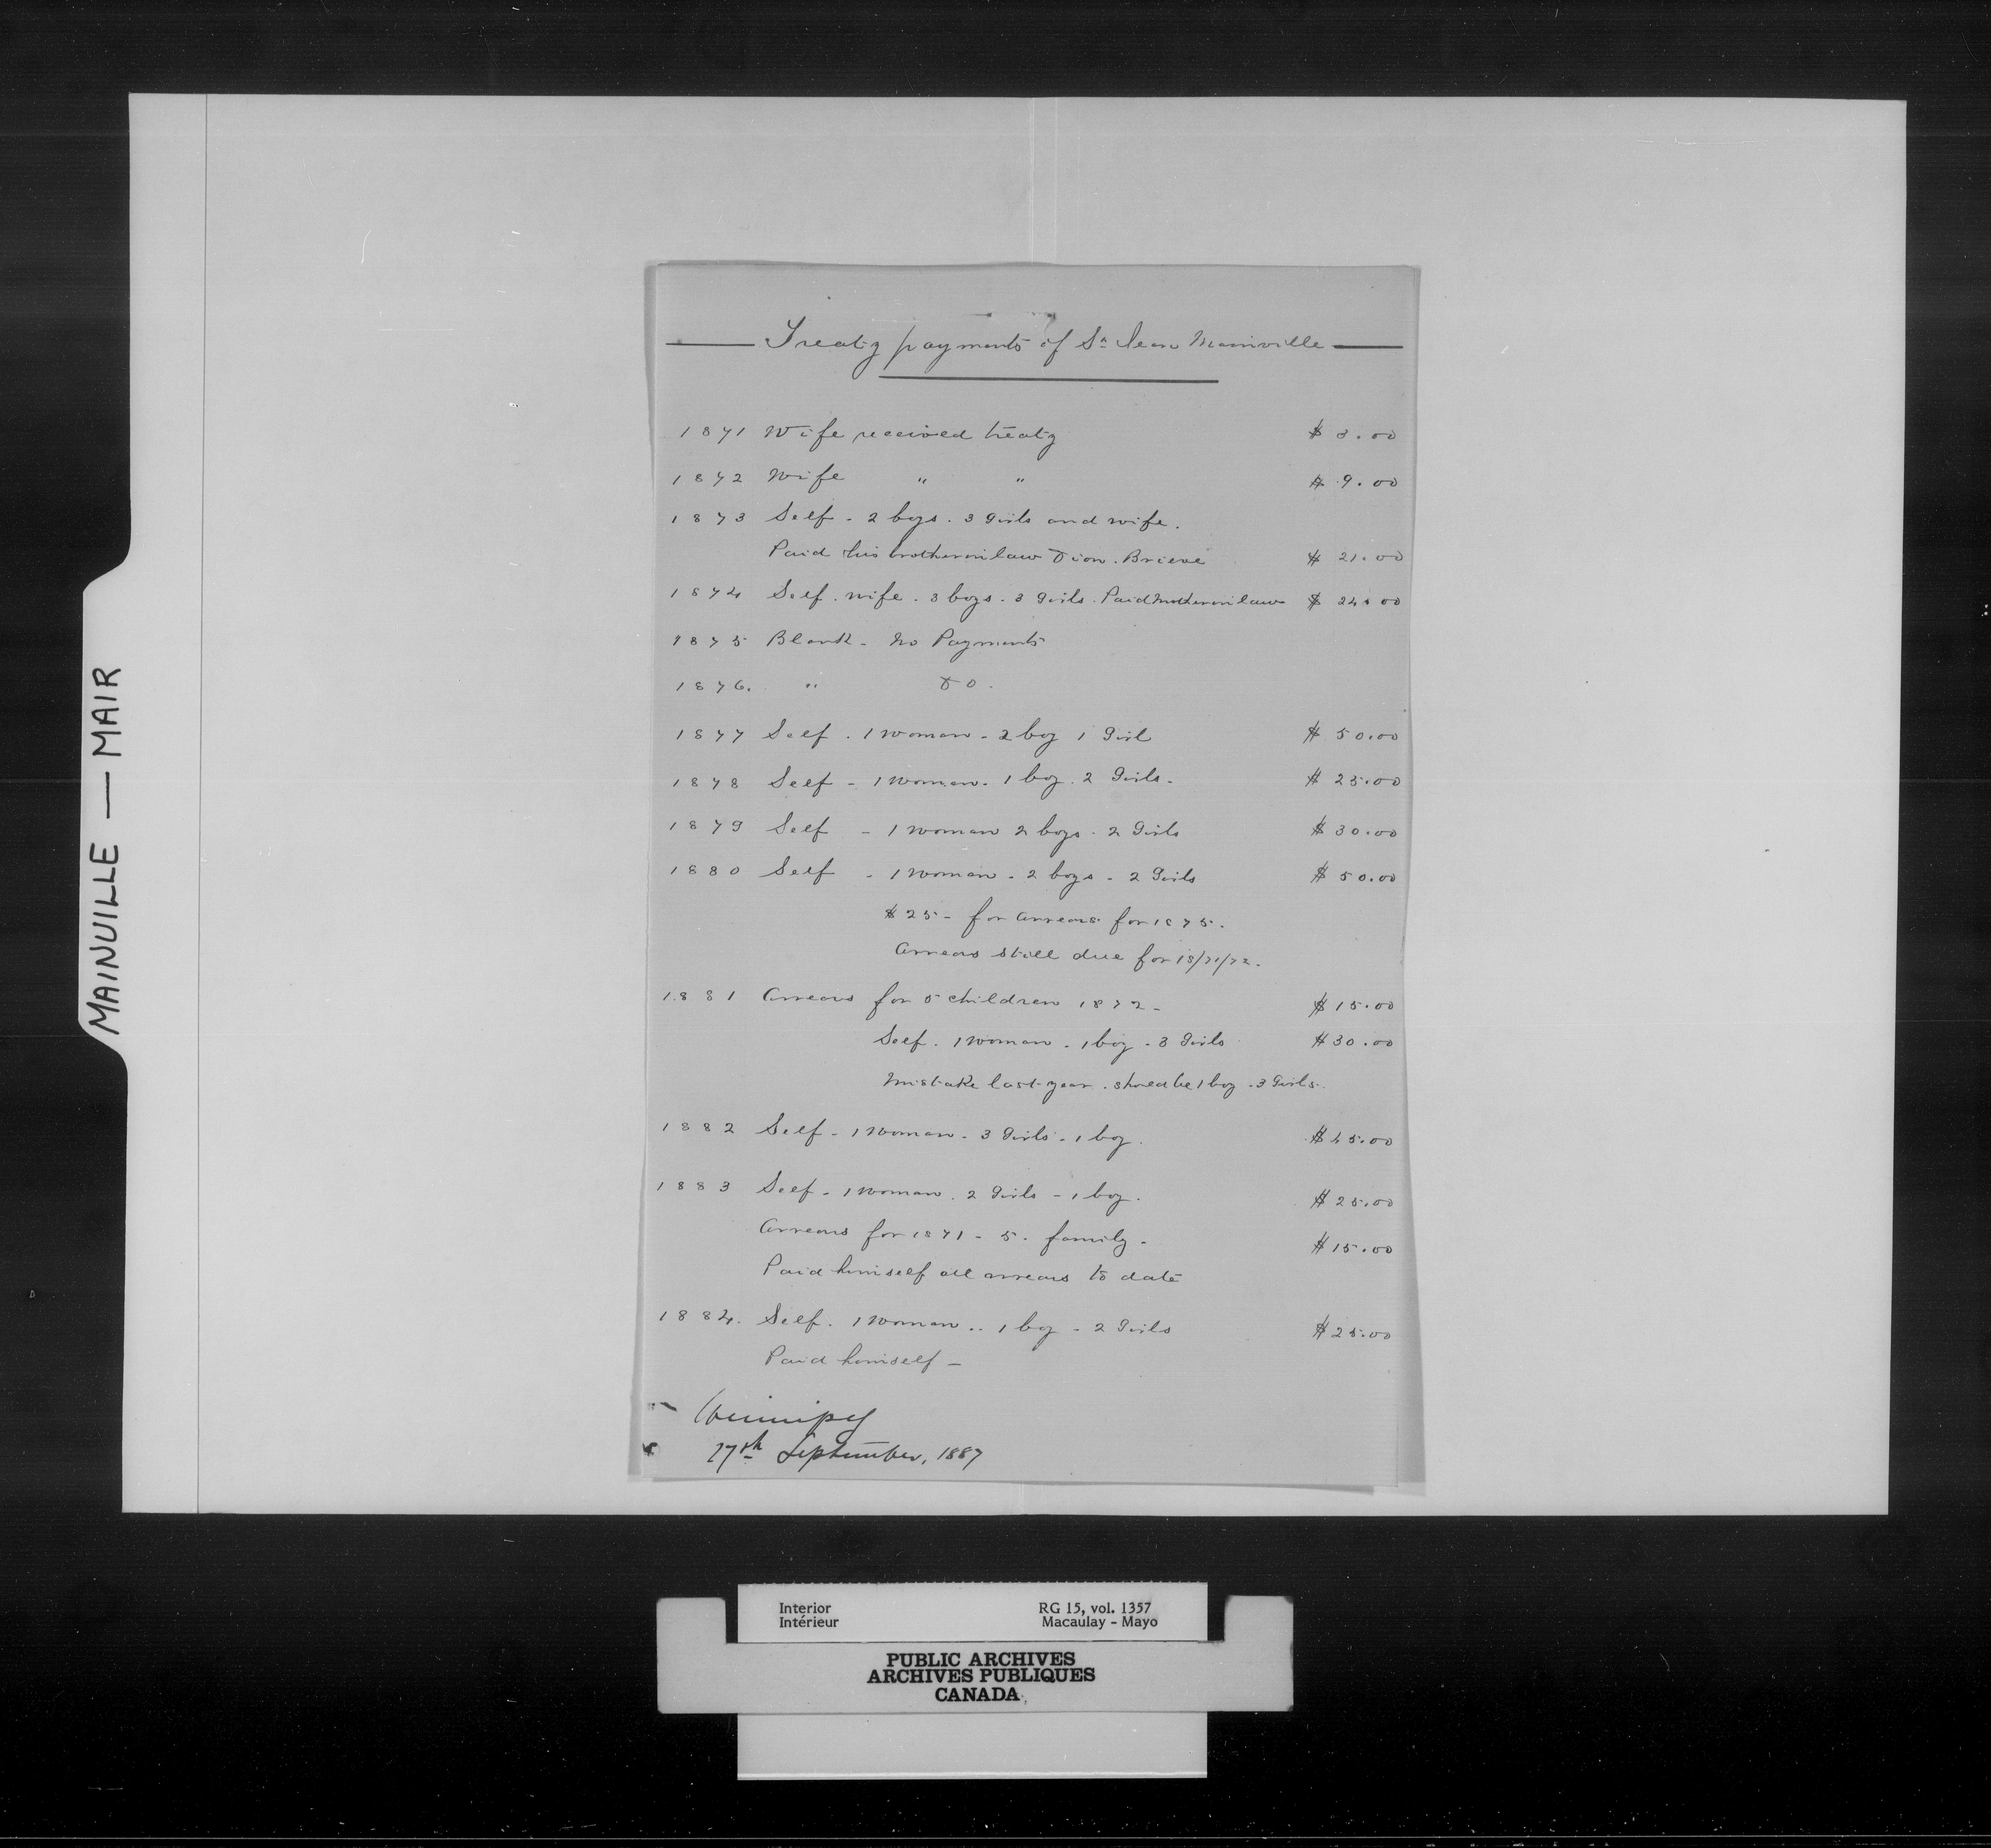 Treaty payments of St Jean Mainville
1871 Wife received treaty $ 3.00
1872 Wife " " $ 9.00
1873 Self - 2 boys - 3 Girls and wife.
Paid his brother in law Dion. Brieve $ 21.00
1874 Self. wife. 3 boys. 3 Girls. Paid mother in law $ 24.00
1875 Blank - No Payments
1876. " Do.
1877 Self. 1 woman - 2 boy 1 Girl $ 50.00
1878 Self - 1 woman - 1 boy. 2 Girls - $ 25.00
1879 Self - 1 woman 2 boys - 2 Girls $ 30.00
1880 Self - 1 woman - 2 boys - 2 Girls $ 50.00
$ 25 - for arrears for 1875.
Arrears still due for 18/71/72.
1881 Arrears for 5 children 1872 - $ 15.00
Self. 1 woman - 1 boy - 3 Girls $ 30.00
Mistake last year. should be 1 boy - 3 Girls.
1882 Self - 1 woman - 3 Girls - 1 boy. $ 45.00
1883 Self - 1 woman. 2 Girls - 1 boy. $ 25.00
Arrears for 1871 - 5. family - $ 15.00
Paid himself all arrears to date
1884. Self. 1 woman.. 1 boy - 2 Girls $ 25.00
Paid himself -
Winnipeg
27th September, 1887
MAINVILLE — MAIR
Interior RG 15, vol. 1357
Intérieur Macaulay - Mayo
PUBLIC ARCHIVES
ARCHIVES PUBLIQUES
CANADA